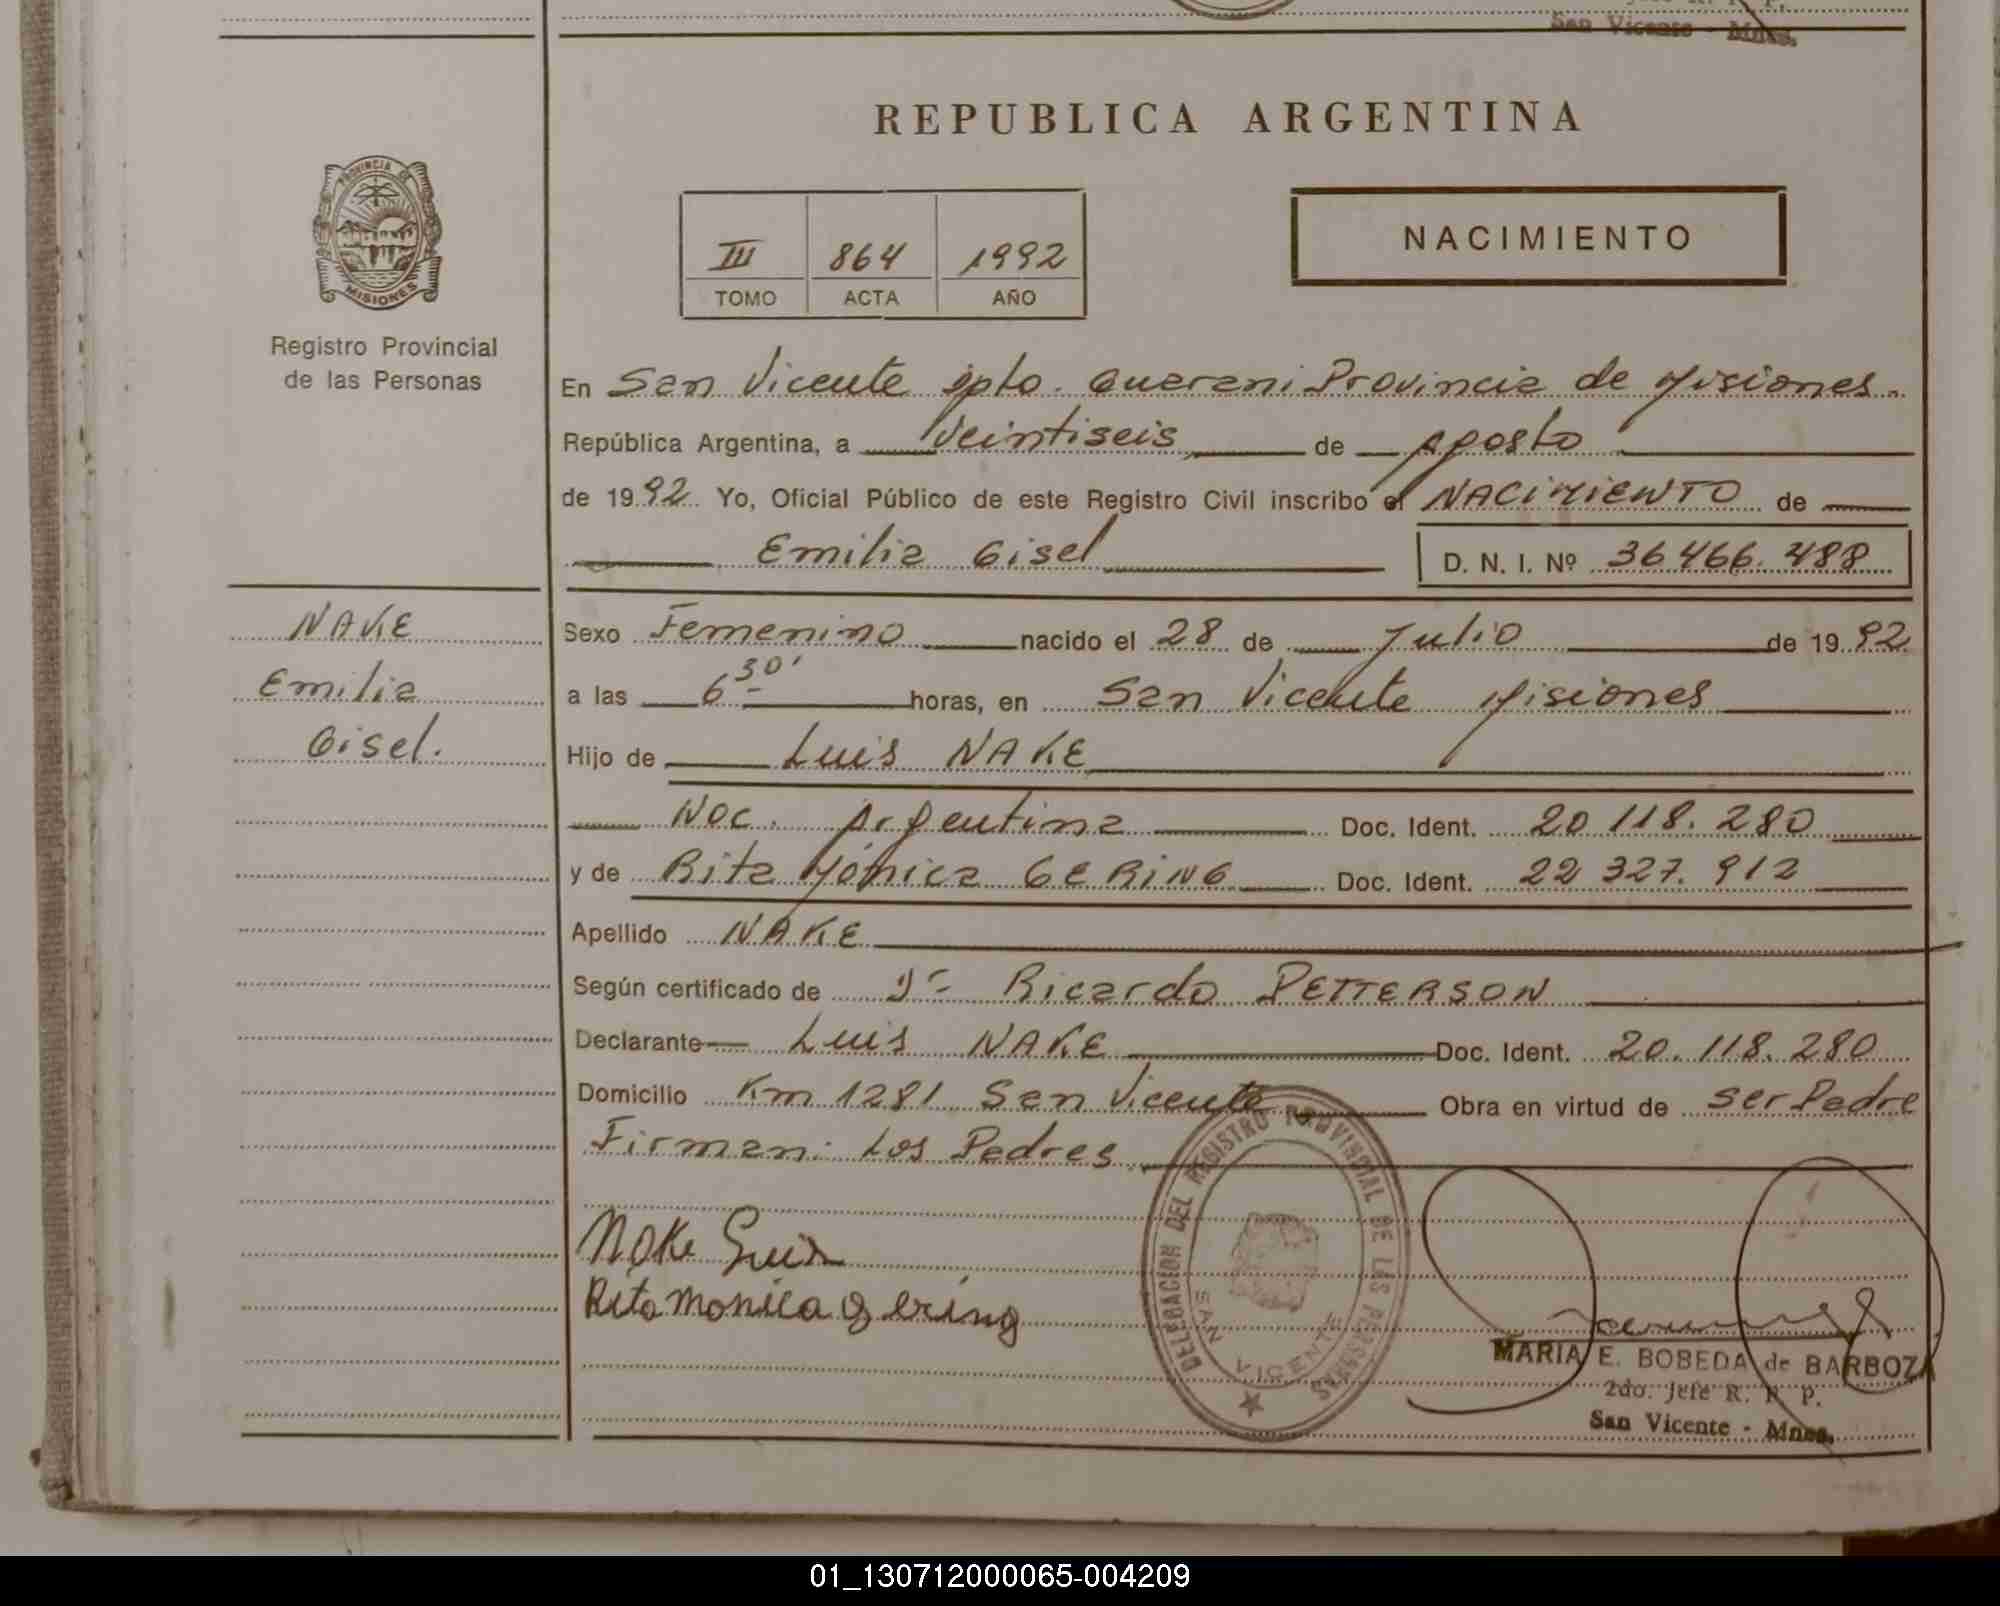 San Vicente - Mnes.
REPUBLICA ARGENTINA
PROVINCIA DE
MISIONES
Registro Provincial
de las Personas
III 864 1992
TOMO ACTA AÑO
NACIMIENTO
En San Vicente Dpto. Guarani Provincia de Misiones.
República Argentina, a veintiseis de Agosto
de 1992 Yo, Oficial Público de este Registro Civil inscribo el NACIMIENTO de
Emilia Gisel D. N. I. Nº 36 466. 488
NAKE
Emilia
Gisel.
Sexo Femenino nacido el 28 de Julio de 1992
a las 6 30' horas, en San Vicente Misiones
Hijo de Luis NAKE
Nac. Argentina Doc. Ident. 20 118. 280
y de Rita Mónica GERING Doc. Ident. 22 327. 912
Apellido NAKE
Según certificado de Dr Ricardo PETTERSON
Declarante Luis NAKE Doc. Ident. 20. 118. 280
Domicilio Km 1281 San Vicente Obra en virtud de ser Padre
Firman: Los Padres
Nake Luis
Rita Monica Gering
DELEGACION DEL REGISTRO PROVINCIAL DE LAS PERSONAS
SAN VICENTE
MARIA E. BOBEDA de BARBOZA
2do. Jefe R. P. P.
San Vicente - Mnes.
01_130712000065-004209